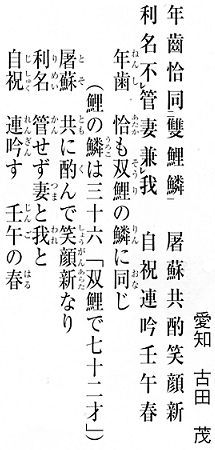 年齒恰同雙鯉鱗　屠蘇共酌笑顔新
利名不レ管妻兼レ我　自祝連吟壬午春
愛知　古田　茂
年歯　恰も双鯉の鱗に同じ
（鯉の鱗は三十六「双鯉で七十二才」）
屠蘇　共に酌んで笑顔新なり
利名　管せず妻と我と
自祝　連吟す　壬午の春